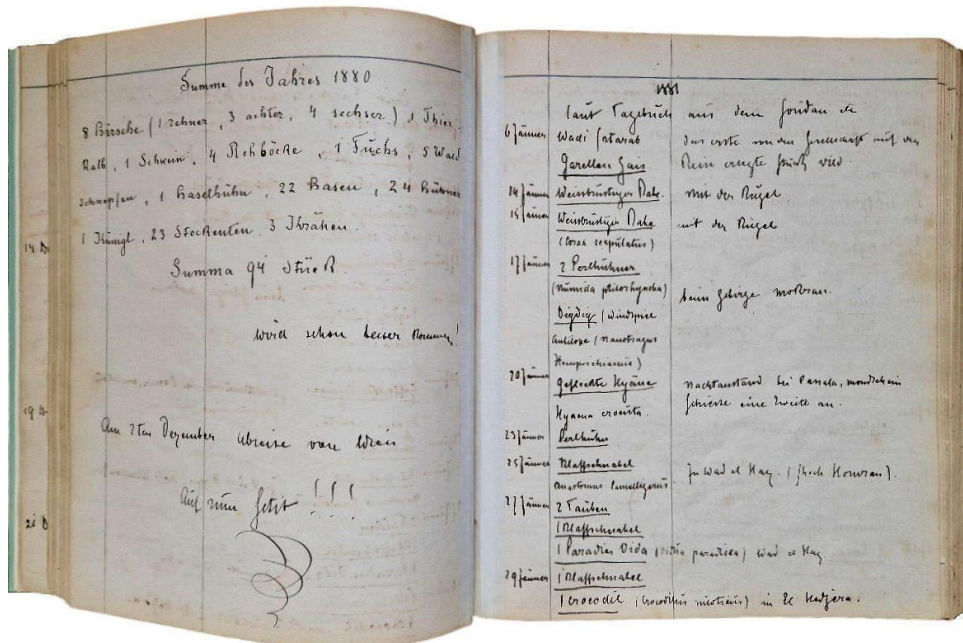 Summe des Jahres 1880
8 Hirsche (1 zehner, 3 achter, 4 sechser) 1 Thier,
Kalb, 1 Schwein, 4 Rehböcke, 1 Fuchs, 5 Wald
schnepfen, 1 Haselhuhn, 22 Hasen, 24 Hühner
1 Küngl, 23 Stockenten, 3 Krähen.
Summa 94 Stück
Wird schon besser kommen!
Am 2ten Dezember Abreise von Wien
Auf nun !!!
14
19
1881
laut Tagebuch aus dem
6 Jänner Wadi das erste von der Gesellschaft auf der
Gazellen Gais erlegte Stück Wild.
14 Jänner Weissbrüstiger Rabe. mit der Kugel
15 Jänner Weissbrüstiger Rabe mit der Kugel
(Corax scapulatus)
17 Jänner 2 Perlhühner
(Numida ptilorhyncha) beim Gebirge
Digdig (Windspiel
Antilope (Nanotragus
Hemprichianus)
20 Jänner Gefleckte Hyäne Nachtanstand bei Cassala, Mondschein
Hyaena crocuta. Schiesse eine Zweite an.
23 Jänner Perlhuhn
25 Jänner Klaffschnabel In Wad el Hag.
Anastomus lamelligerus.
27 Jänner 2 Tauben
1 Klaffschnabel
1 Paradies Vida (Vidua paradisea) Wad el Hag
29 Jänner 1 Klaffschnabel
1 Crocodil (Crocodilus niloticus) in El Hedjera.